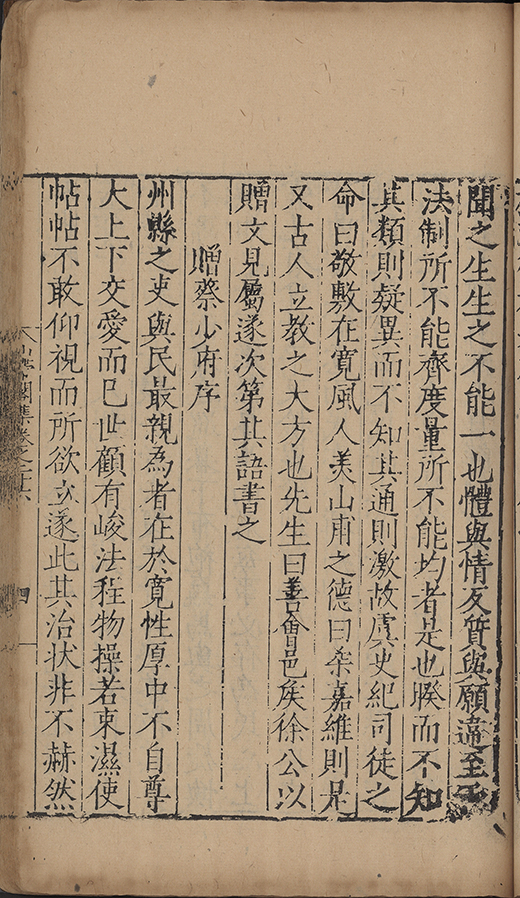 聞之生生之不能一也體與情反質與願違至於
法制所不能齊度量所不能均者是也暌而不知
其類則疑異而不知其通則激故虞史紀司徒之
命曰敬敷在寬風人美山甫之德曰柔嘉維則是
又古人立教之大方也先生曰善會邑矦徐公以
贈文見屬遂次第其語書之
贈蔡少府序
州縣之吏與民最親為者在於寬性厚中不自尊
大上下交愛而已世顧有峻法程物操若束濕使
帖帖不敢仰視而所欲立遂此其治状非不赫然
集卷之十六
四